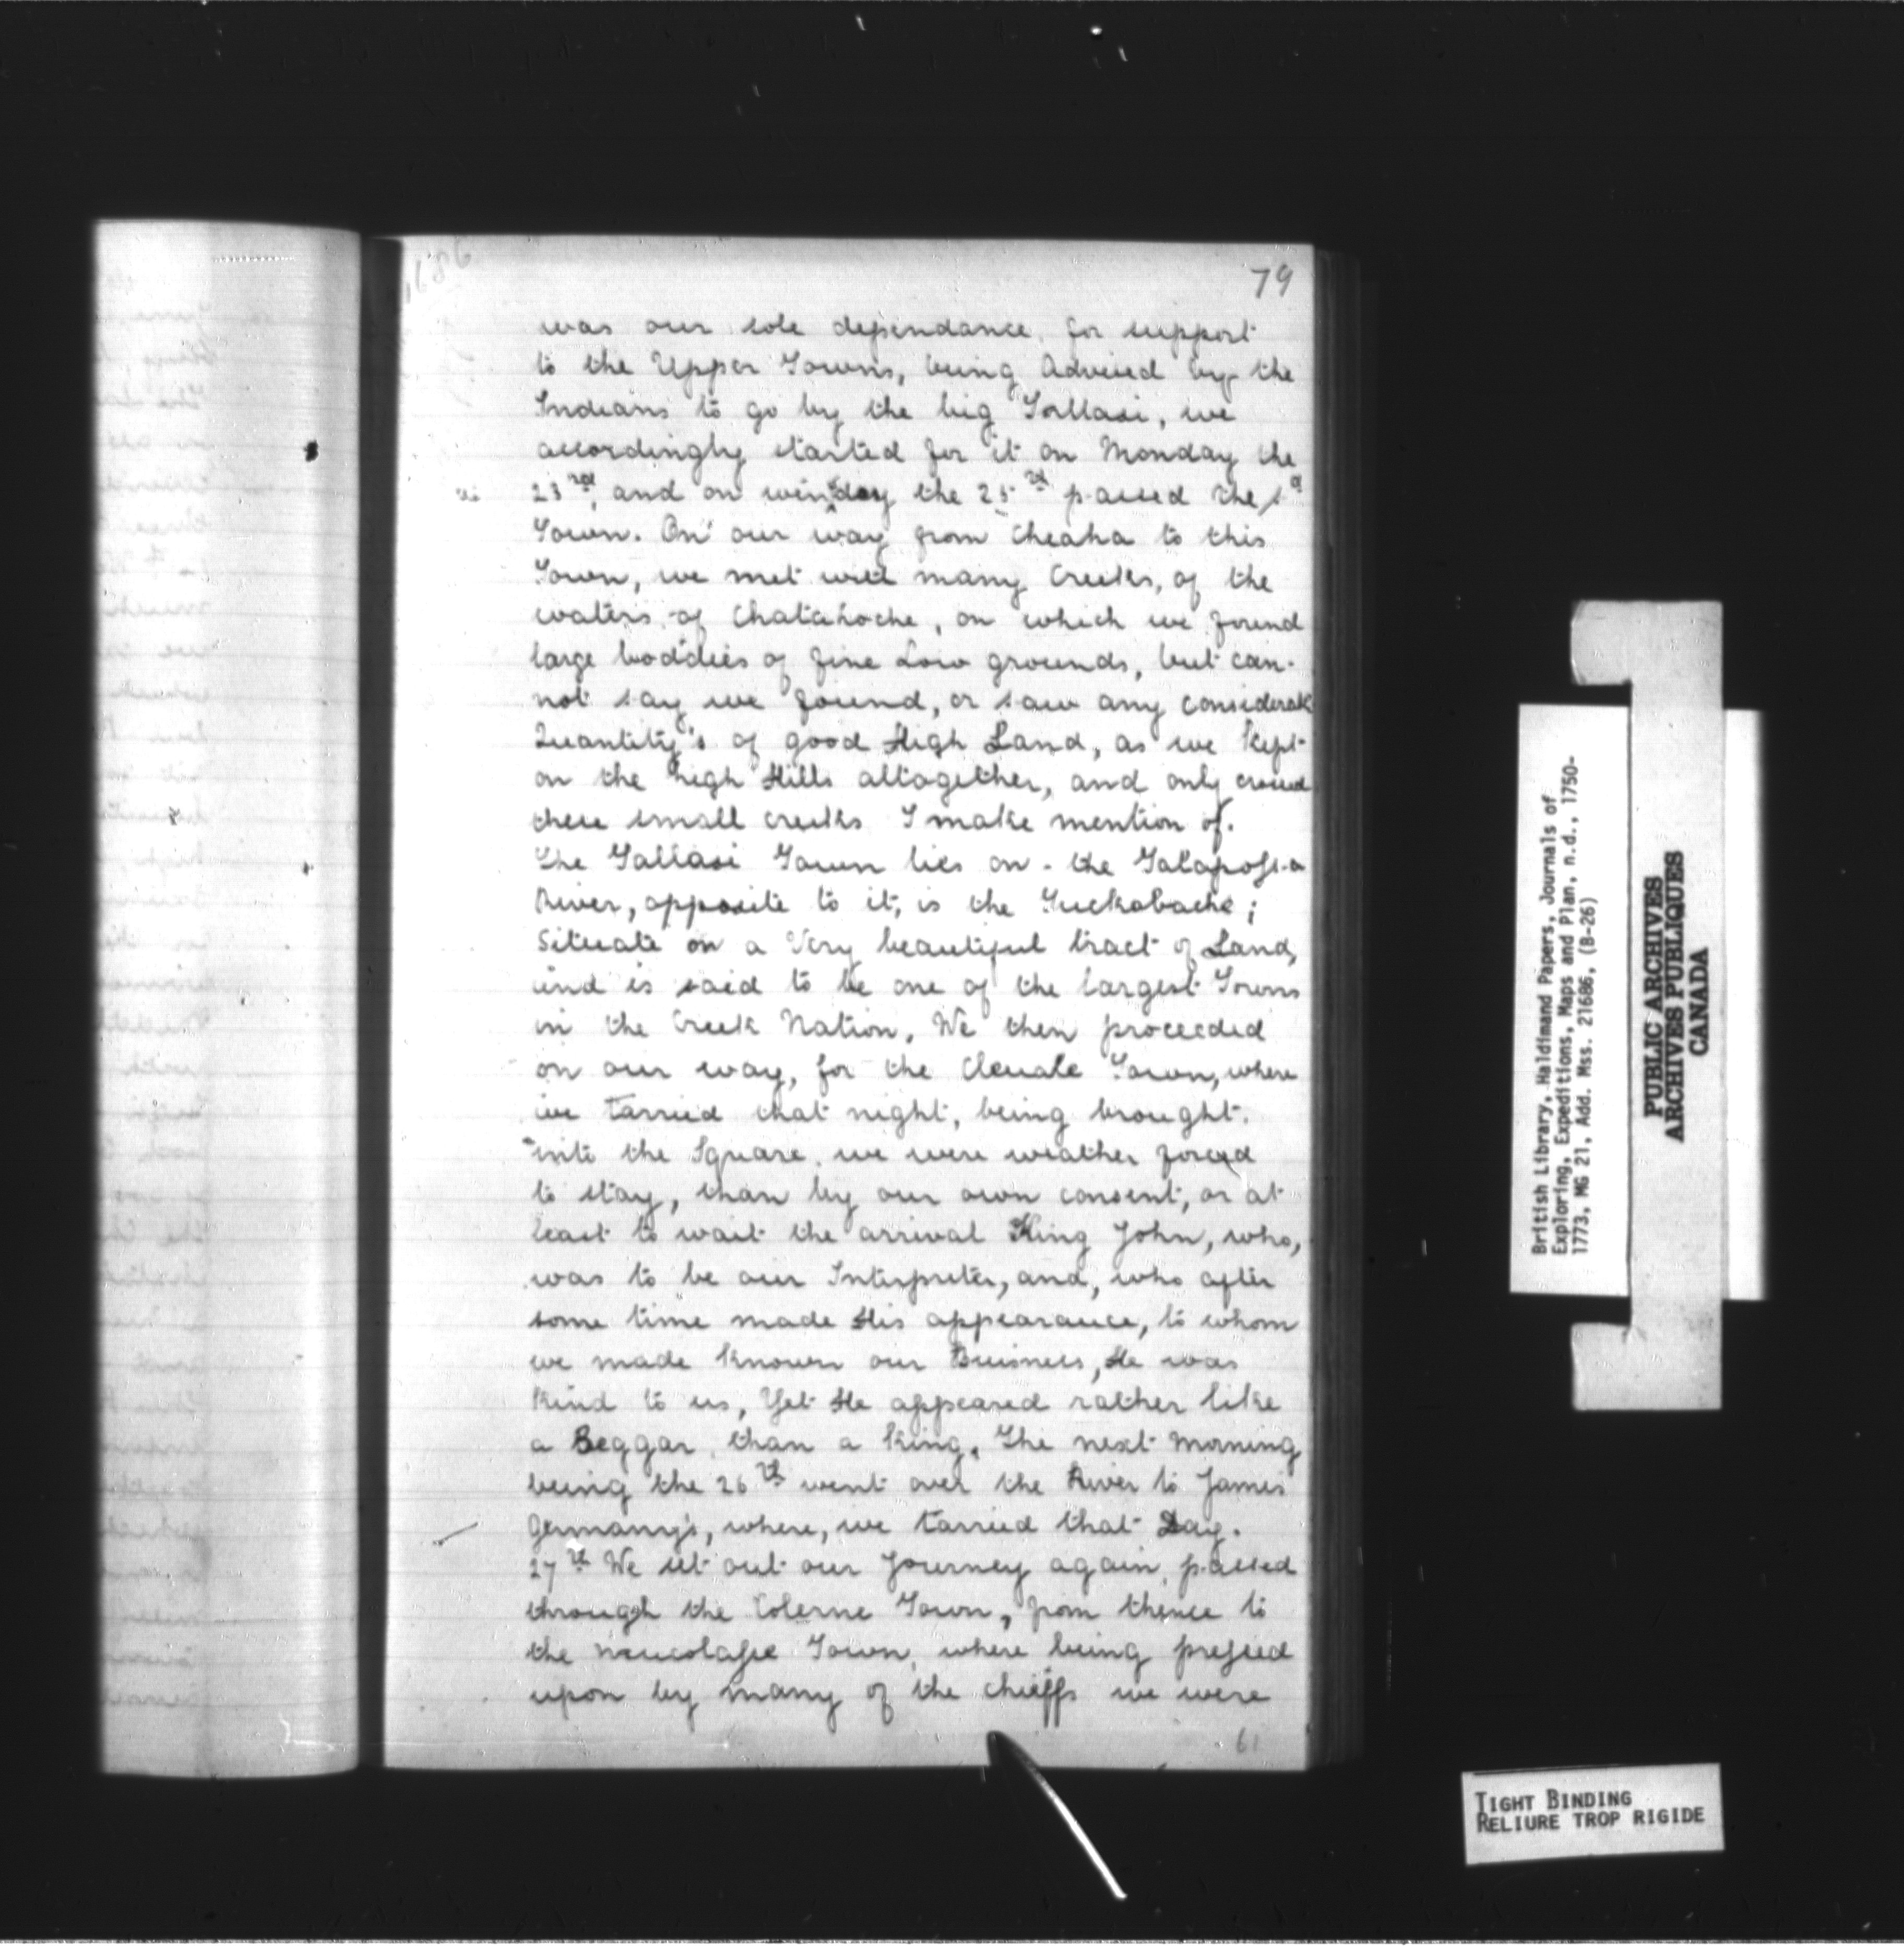 1686
79
was our sole dependance for support
to the Upper Towns, being Advised by the
Indians to go by the big Tallasi, we
accordingly started for it on Monday the
23rd, and on winsday the 25th passed the sd
Town. On our way from Cheaha to this
Town, we met with many Creeks, of the
waters of Chatahoche, on which we found
large boddies of fine Low grounds, but can-
not say we found, or saw any considerab
Quantity's of good High Land, as we kept
on the high Hills altogether, and only crossed
these small creeks I make mention of.
The Tallasi Town lies on - the Talapossa
River, opposite to it, is the Tuckabache;
Situate on a Very beautiful tract of Land,
and is said to be one of the largest Towns
in the Creek Nation, We then proceeded
on our way, for the Clewale Town, where
we tarried that night, being brought.
into the Square, we were weather forced
to stay, than by our own consent, or at
least to wait the arrival King John, who,
was to be our Interpreter, and, who after
some time made His appearance, to whom
we made known our Buisness, He was
kind to us, Yet He appeared rather like
a Beggar than a King. The next Morning
being the 26th went over the River to James
Germany's, where, we tarried that Day.
27th We set out our Journey again, passed
through the Colerne Town, from thence to
the Town, where being pressed
upon by many of the chieffs we were
61
British Library, Haldimand Papers, Journals of
Exploring, Expeditions, Maps and Plan, n.d., 1750-
1773, MG 21, Add. Mss. 21686, (B-26)
PUBLIC ARCHIVES
ARCHIVES PUBLIQUES
CANADA
TIGHT BINDING
RELIURE TROP RIGIDE